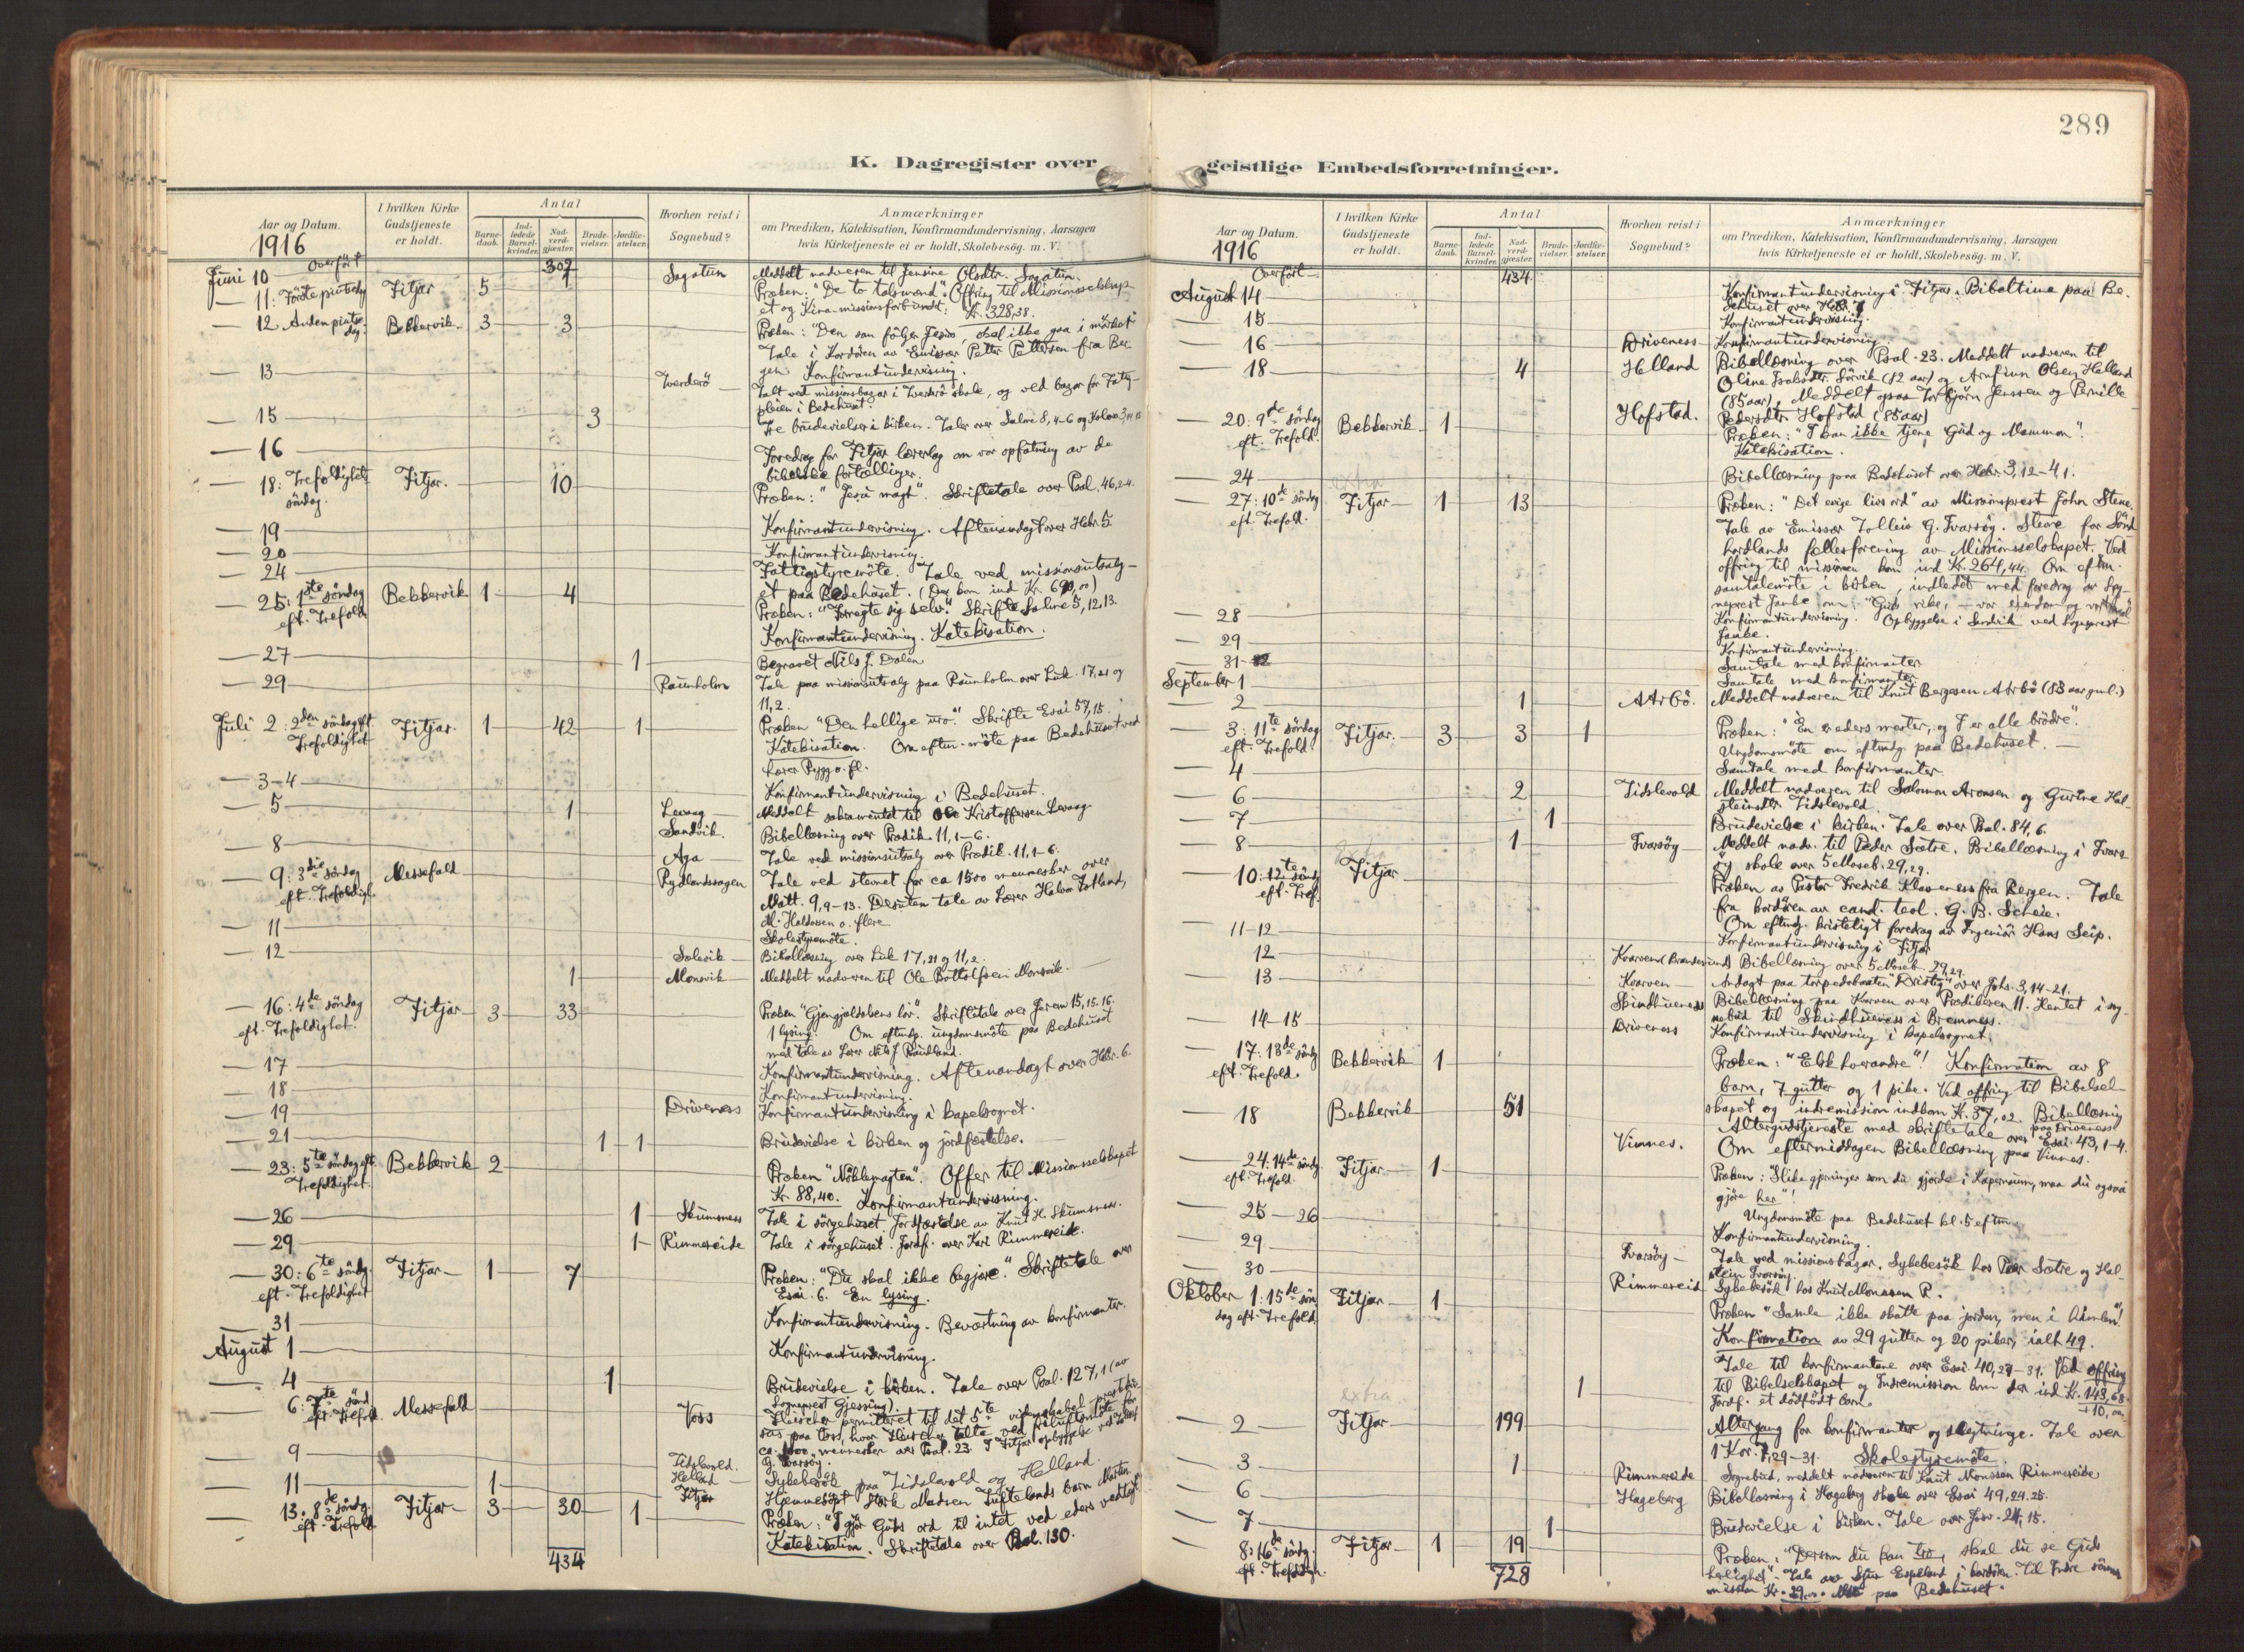 289
K. Dagregister over geistlige Embedsforretninger.
Aar og Datum. I hvilken Kirke Gudstjeneste er holdt. Antal Barnedaab. Indledede Barselkvinder. Nadverdgjæster. Brudevielser. Jordfæstelser. Hvorhen reist i Sognebud? Anmærkninger om Prædiken, Katekisation, Konfirmandundervisning, Aarsagen hvis Kirketjeneste ei er holdt, Skolebesög. m. V.
1916
Overført 302
Juni 10 1 Sagatun Meddelt nadveren til Jensine Olsdtr. Sagatun.
— 11: Første pinsedag Fitjar 5 Præken: "De to talsmænd". Offring til Missionsselskap-
et og Kina-missionsforbundet: Kr. 328,38.
— 12 Anden pinsedag Bekkervik 3 3 Præken: "Den som følger Jesus, skal ikke gaa i mørket"
Tale i Kordøren av Emissær Petter Pettersen fra Ber-
gen. Konfirmantundervisning.
— 13 Iverderö Talt ved missionsbazar i skole, og ved bazar for
pleien i Bedehuset.
— 15 3 Tre brudevielser i kirken. Taler over Salme 8, 4-6 og
— 16 Foredrag for Fitjar lærerlag om vor opfatning av de
bibelske fortællinger.
— 18: Trefoldighets söndag Fitjar. 10 Præken: "Jesu magt". Skriftetale over Psal. 46, 2-4.
— 19 Konfirmantundervisning. Aftenandagt over Hebr. 5
— 20 Konfirmantundervisning.
— 24 Fattigstyremöte. Tale ved missionsutsalg-
et paa Bedehuset. (Der kom ind Kr. 690,00)
— 25: 1ste söndag eft. Trefold. Bekkervik 1 4 Præken: "Fornegte sig selv." Skrifte Salme 5, 12.13.
Konfirmantundervisning. Katekisation.
— 27 1 Begravet Nils J. Dalen
— 29 Raunholm Tale paa missionsutsalg paa Raunholm over Luk. 17,21 og
11,2.
Juli 2: 2den söndag eft. Trefoldighet Fitjar. 1 42 1 Præken "Den hellige uro." Skrifte Esai 57,15.
Katekisation. Om eftm. möte paa Bedehuset ved
lærer Rygg o. fl.
— 3-4 Konfirmantundervisning i Bedehuset.
— 5 1 Levaag Meddelt sakramentet til Ole Kristoffersen Levaag
Sandvik. Bibellæsning over Prædik. 11, 1-6.
— 8 Aga Tale ved missionsutsalg over Prædik. 11, 1-6.
— 9: 3die söndag eft. Trefoldigh. Messefald Rydlandssagen Tale ved stevnet for ca 1500 mennesker over
Matt. 9, 9-13. Desuten tale av Lærer Halvor Totland,
M. Haldorsen o. flere
— 11 Skolestyremøte.
— 12 Solevik Bibellæsning over Luk 17,21 og 11,2.
1 Monsvik Meddelt nadveren til Ole Bottolfsen Monsvik.
— 16: 4de söndag eft. Trefoldighet. Fitjar 3 33 Præken "Gjengjældelsens lov". Skriftetale over Jerem 15, 15.16.
1 lysing. Om eftmdg. ungdomsmöte paa Bedehuset
med tale av Lærer Nils J.
— 17 Konfirmantundervisning. Aftenandagt over Hebr. 6.
— 18 Konfirmantundervisning.
— 19 Driveness Konfirmantundervisning i kapelsognet.
— 21 1 1 Brudevielse i kirken og jordfæstelse.
— 23: 5te söndag eft. Trefoldighet. Bekkervik 2 Præken "Nöklemagten". Offer til Missionsselskapet
Kr. 88,40. Konfirmantundervisning.
— 26 1 Skumsnes Tale i sörgehuset. Jordfæstelse av Knut H. Skumsnes.
— 29 1 Rimmereide Tale i sörgehuset. Jordf. over Kari Rimmereide.
— 30: 6te söndg. eft. Trefoldighet Fitjar 1 7 Præken: "Du skal ikke begjære." Skriftetale over
Esai. 6. En lysing.
— 31 Konfirmantundervisning. Beværtning av konfirmanter.
August 1 Konfirmantundervisning.
— 4 1 Brudevielse i kirken. Tale over Psal. 127,1 (av
Sogneprest Gjessing).
— 6: 7te sönd. eft. Trefold. Messefald Voss permitteret til det 5te
ca. 1000 mennesker over Psal. 23.
— 9 Tidslevold. Helland Sykebesök paa Tidslevold og Helland.
— 11 1 Fitjar Hjemmedöpt barn
— 13: 8de söndg. eft. Trefold. Fitjar 3 30 1 Præken: "I gjör Guds ord til intet ved eders vedtægt"
Katekisation. Skriftetale over Psal. 130.
434
1916
Overført 434
August 14 Konfirmantundervisning i Fitjar. Bibeltime paa Be-
dehuset over Hebr.
— 15 Konfirmantundervisning.
— 16 Driveness Konfirmantundervisning.
— 18 4 Helland Bibellæsning over Psal. 23. Meddelt nadveren til
Oline (82 aar) og Arnfinn Olsen Helland
(85 aar). Meddelt ogsaa Torbjörn Jenssen og Pernille
Hofstad. Pedersdtr. Hofstad (85 aar)
— 20: 9de söndag eft. Trefold. Bekkervik 1 Præken: "I kan ikke tjene Gud og Mammon".
Katekisation.
— 24 Bibellæsning paa Bedehuset over Hebr. 3,12-4,1.
extra
— 27: 10de söndag eft. Trefold. Fitjar 1 13 Præken: "Det evige livs ord" av Missionsprest John Stene.
Tale av Emissær Tolleiv G. Ivarsøy. Stevne for Sönd
hordlands fellesforening av Missionsselskapet. Ved
offring til missionen kom ind Kr. 264,44. Om eftm.
samtalemöte i kirken, indledet med foredrag av Sog-
neprest om: "Guds rike, – vor eiendom og
— 28 Konfirmantundervisning. Opbyggelse i Sandvik ved Sogneprest
— 29 Konfirmantundervisning.
— 31 Samtale med konfirmanter
September 1 Samtale med konfirmanter
— 2 1 Aarbö. Meddelt nadveren til Knut Bergesen Aarbö (83 aar gml.)
— 3: 11te söndag eft. Trefold. Fitjar. 3 3 1 Præken: "En er eders mester, og I er alle brödre".
Ungdomsmöte om eftmdg. paa Bedehuset.
— 4 Samtale med konfirmanter.
— 6 2 Tidslevold Meddelt nadveren til Salomon Aronsen og Gurine Hal-
steinsdtr Tidslevold.
— 7 1 Brudevielse i kirken. Tale over Psal. 84,6.
— 8 1 Ivarsöy Meddelt nadv. til Peder Sætre. Bibellæsning i Ivars-
öy skole over 5 Moseb. 29,29.
extra
— 10: 12te söndg. eft. Tref. Fitjar Præken av Pastor Fredrik Klaveness fra Bergen. Tale
fra kordören av cand. teol. G. B. Scheie.
Om eftmdg. kristeligt foredrag av Ingeniör Hans Seip.
— 11-12 Konfirmantundervisning i Fitjar
— 12 Kvarven (Brandesund) Bibellæsning over 5 Moseb. 29,29.
— 13 Kvarven Andagt paa torpedobaaten "Dristig" over Joh. 3, 14-21.
Skindhueness Bibellæsning paa Kvarven over Prædikeren 11. Hentet i sog-
nebud til Skindhueness i Bremness.
— 14-15 Driveness Konfirmantundervisning i kapelsognet.
— 17: 13de söndg. eft. Trefold. Bekkervik 1 Præken: "Elsk hverandre"! Konfirmation av 8
barn, 7 gutter og 1 pike. Ved offring til Bibelsel-
skapet og indremission indkom Kr. 37,02. Bibellæsning
paa Driveness
extra
— 18 Bekkervik 51 Altergudstjeneste med skriftetale over Esai. 43, 1-4.
Vinnes. Om eftermiddagen Bibellæsning paa Vinnes.
— 24: 14de söndg. eft. Trefold. Fitjar 1 Præken: "Slike gjerninger som du gjorde i Kapernaum, maa du ogsaa
gjöre her"!
Ungdomsmöte paa Bedehuset kl. 5 eftm.
— 25 — 26 Konfirmantundervisning.
— 29 Ivarsöy Tale ved missionsbazar. Sykebesök hos Peder Sætre og Hal-
stein Ivarsöy.
— 30 Rimmereid Sykebesök hos Knut Monssen R.
Oktober 1: 15de sön dag eft. Trefold. Fitjar 1 Præken "Samle ikke skatte paa jorden, men i himlen"!
Konfirmation av 29 gutter og 20 piker, ialt 49.
Tale til konfirmantene over Esai. 40, 29-31. Ved offring
til Bibelselskapet og Indremission kom der ind Kr. 143,68
+10,00
1 Jordf. et dödfödt barn.
extra
— 2 Fitjar 199 Altergang for konfirmanter og slegtninge. Tale over
1 Kor. 7, 29-31. Skolestyremöte.
— 3 1 Rimmereide Sognebud, meddelt nadveren til Knut Monssen Rimmereide
— 6 Hageberg Bibellæsning i Hageberg skole over Esai 49, 24.25.
— 7 1 Brudevielse i kirken. Tale over Josv. 24, 15.
— 8: 16de söndg. eft. Trefoldigh. Fitjar 1 19 Præken: "Dersom du kan tro, skal du se Guds
herlighet". Tale av Espeland i kordören. Til Indre sömands
mission Kr. 29,00. Möte paa Bedehuset.
728